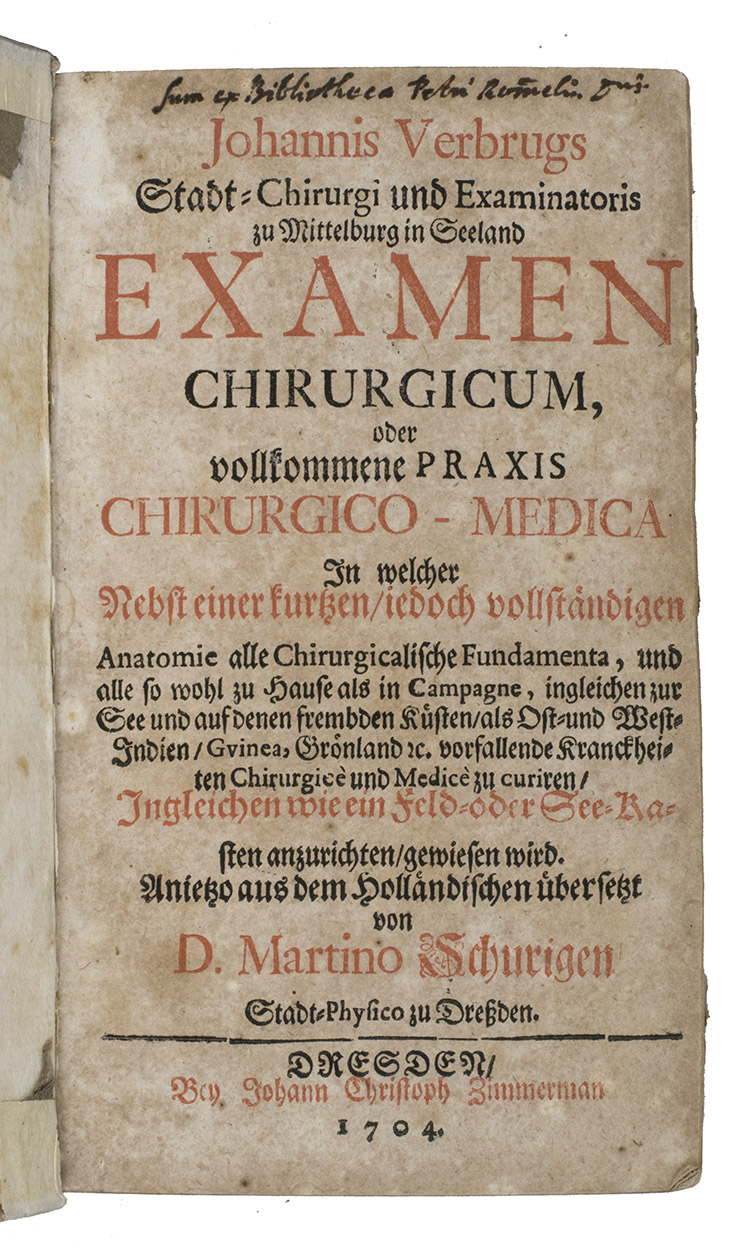 Sum ex Bibliotheca Petri
Johannis Verbrugs
Stadt-Chirurgi und Examinatoris
zu Mittelburg in Seeland
EXAMEN
CHIRURGICUM,
oder
vollkommene PRAXIS
CHIRURGICO - MEDICA
In welcher
Nebst einer kurtzen/iedoch vollständigen
Anatomie alle Chirurgicalische Fundamenta, und
alle so wohl zu Hause als in Campagne, ingleichen zur
See und auf denen frembden Küsten/als Ost-und West-
Indien/Gvinea, Grönland ꝛc. vorfallende Kranckhei-
ten Chirurgicè und Medicè zu curiren/
Ingleichen wie ein Feld-oder See-Ka-
sten anzurichten/gewiesen wird.
Anietzo aus dem Holländischen übersetzt
von
D. Martino Schurigen
Stadt-Physico zu Dreßden.
DRESDEN/
Bey Johann Christoph Zimmerman
1704.